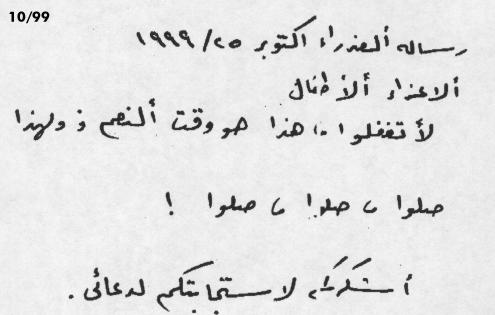 10/99
رسالة ألعذراء اكتوبر ٢٥/١٩٩٩
ألاعزاء ألأطفال
لأ تغفلوا، هذا هو وقت ألنعم ؛ ولهذا
صلوا ، صلوا ، صلوا !
أشكركم لاستجابتكم لدعائى.